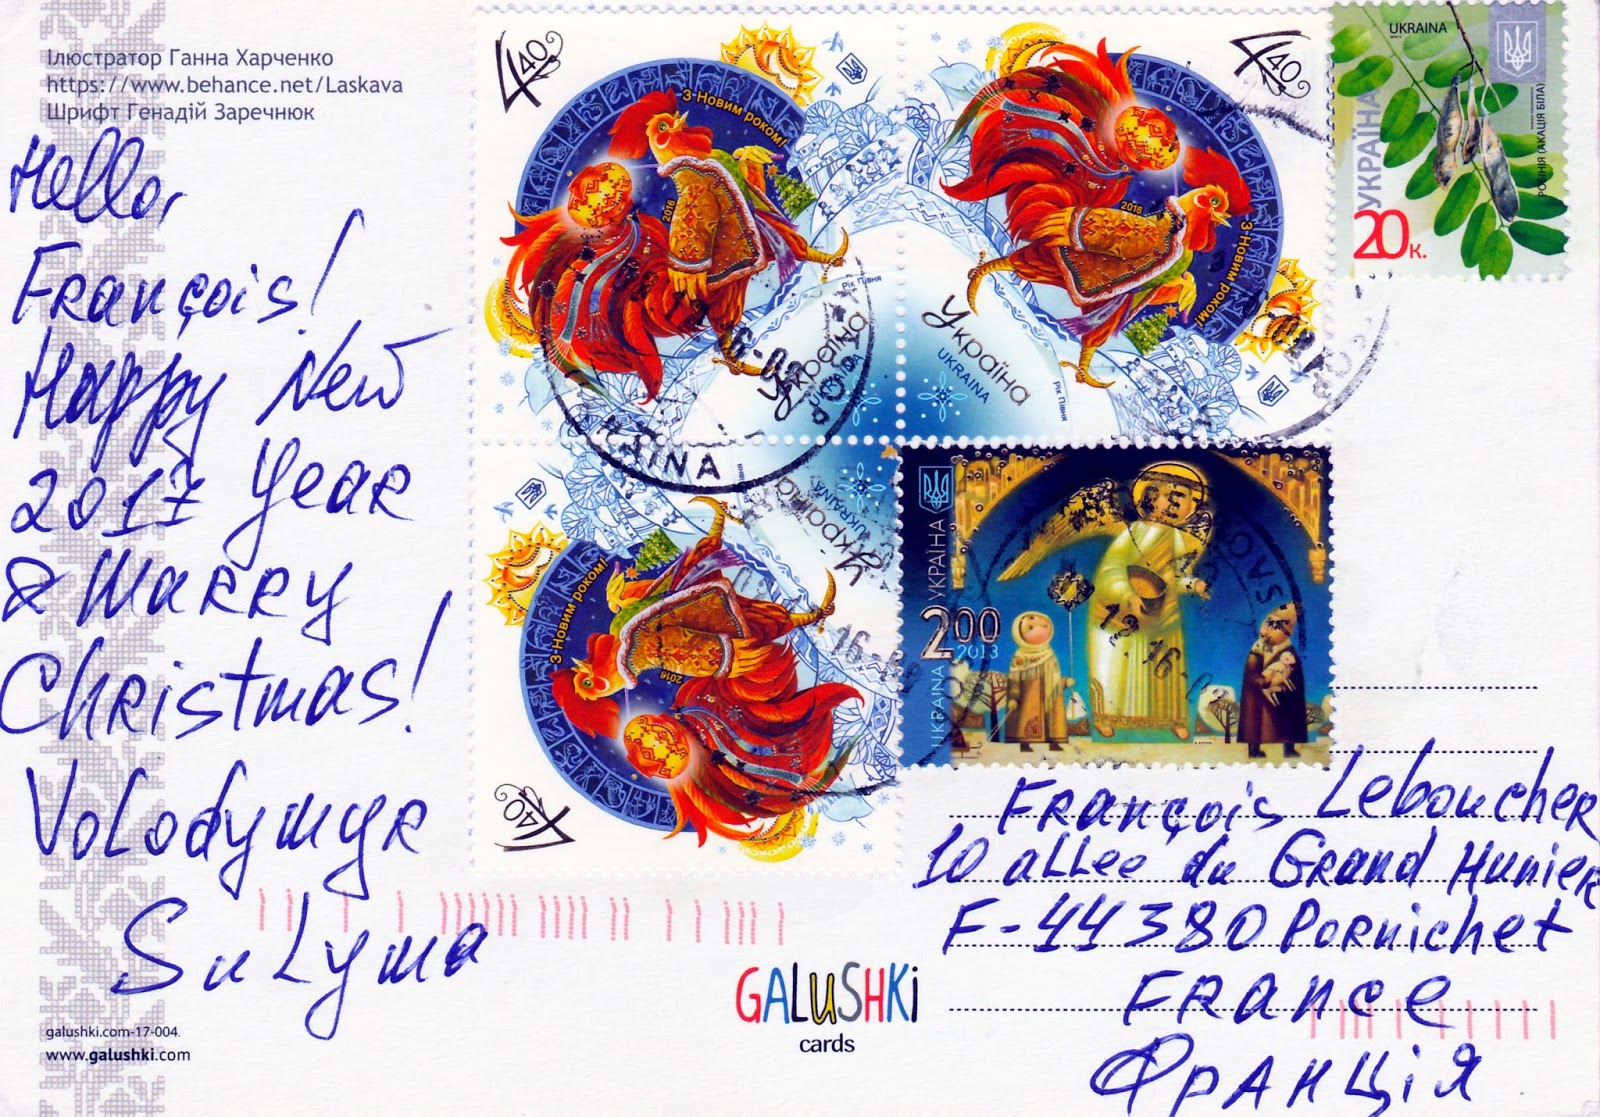 Ілюстратор Ганна Харченко
https://www.behance.net/Laskava
Шрифт Генадій Заречнюк
Hello,
François!
Happy New
2017 Year
& Marry
Christmas!
Volodymyr
Sulyma
galushki.com-17-004.
www.galushki.com
4.40
З Новим роком!
2016
Рік Півня
Україна
UKRAINA
4.40
З Новим роком!
2016
Рік Півня
Україна
UKRAINA
UKRAINA
УКРАЇНА
РОБІНІЯ (АКАЦІЯ БІЛА)
20к.
4.40
З Новим роком!
2016
Україна
UKRAINA
УКРАЇНА
2.00
2013
UKRAINA
François Leboucher
10 allee du Grand Hunier
F-44380 Pornichet
France
Франція
GALUSHKi
cards